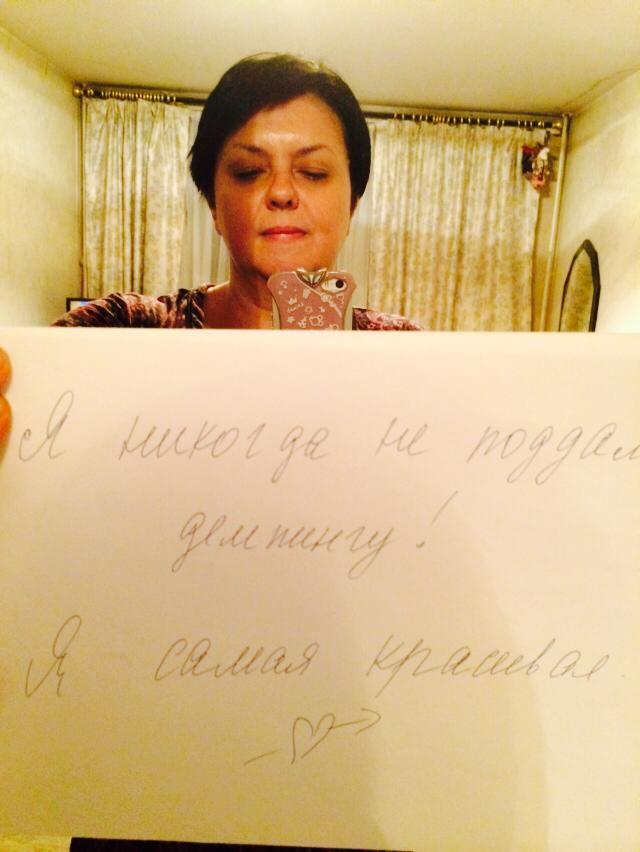 Я никогда не поддам
демпингу!
Я самая красивая.